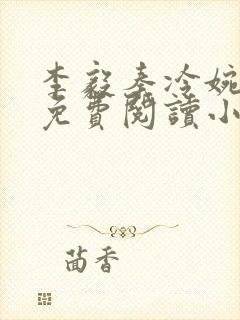 李毅秦冷婉
免費閱讀小
茴香